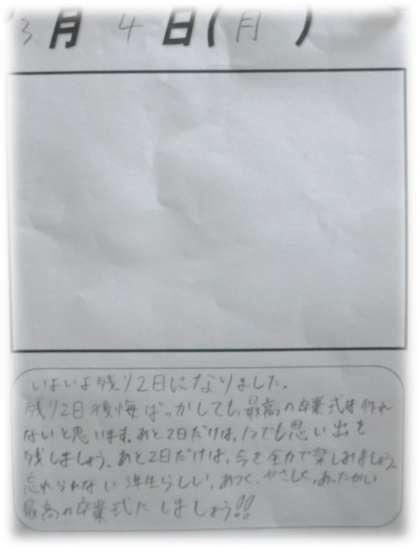 3月4日(月)
いよいよ残り2日になりました。
残り2日後悔ばっかしても、最高の卒業式は作れ
ないと思います。あと2日だけは、1つでも思い出を
残しましょう。あと2日だけは、今を全力で楽しみましょう。
忘れられない 年生らしい、あつく、やさしく、あったかい
最高の卒業式にしましょう!!